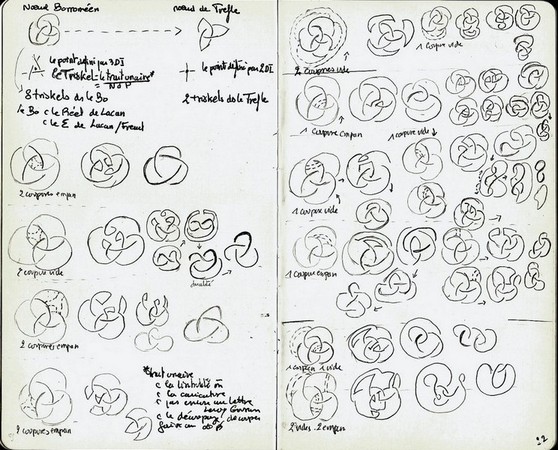 Nœud Borroméen
nœud de Trefle
le point défini par 3DI
le Triskel = le trait unaire*
= NdP
le point défini par 2DI
8 triskels ds le Bo
2 triskels ds le Trefle
le Bo c le Réel de Lacan
c le E de Lacan/Freud
2 coupures empan
2 coupures vide
dualité
2 coupures empan
2 coupures empan
*trait unaire
c la
c la caricature
c pas encore une lettre
c le
faire un
2 coupures vide
1 coupure vide
1 coupure empan
1 coupure vide
1 coupure vide
1 coupure empan
1 empan 1 vide
2 vides. 2 empan
22